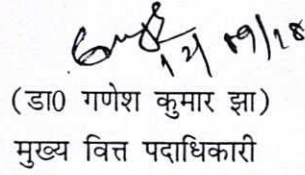 12/09/18
(डा0 गणेश कुमार झा)
मुख्य वित्त पदाधिकारी